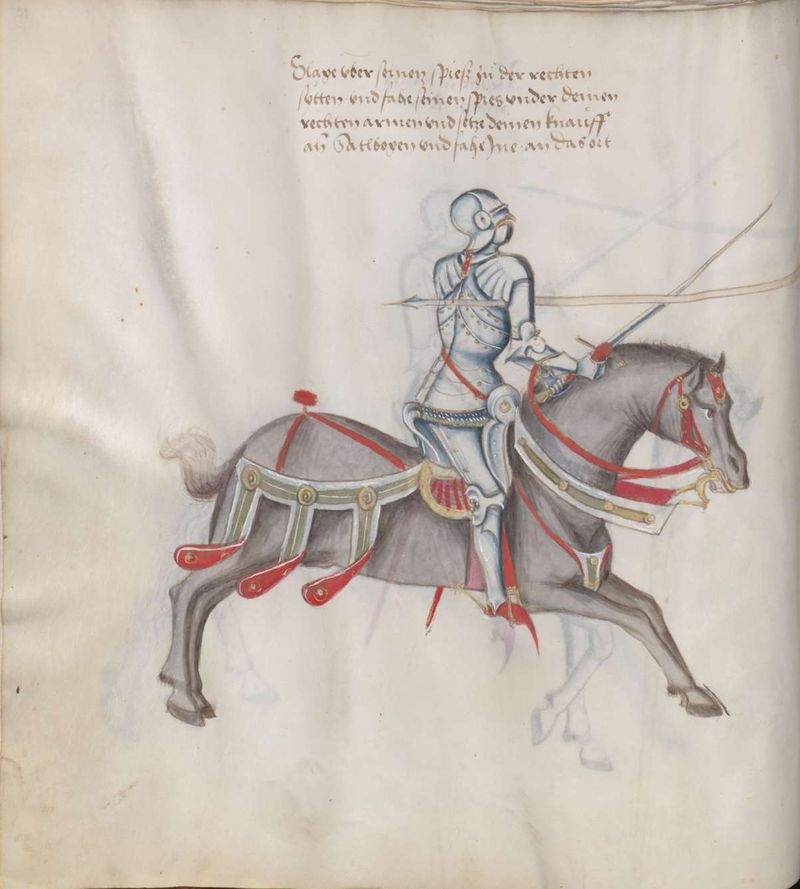 Slaxe vber seinen spiesz zu der rechten
sytten vnd fahe seinen spies vnder deinen
rechten armen vnd setze deinen knauff
an Satlbogen vnd fahe Ine an das ort